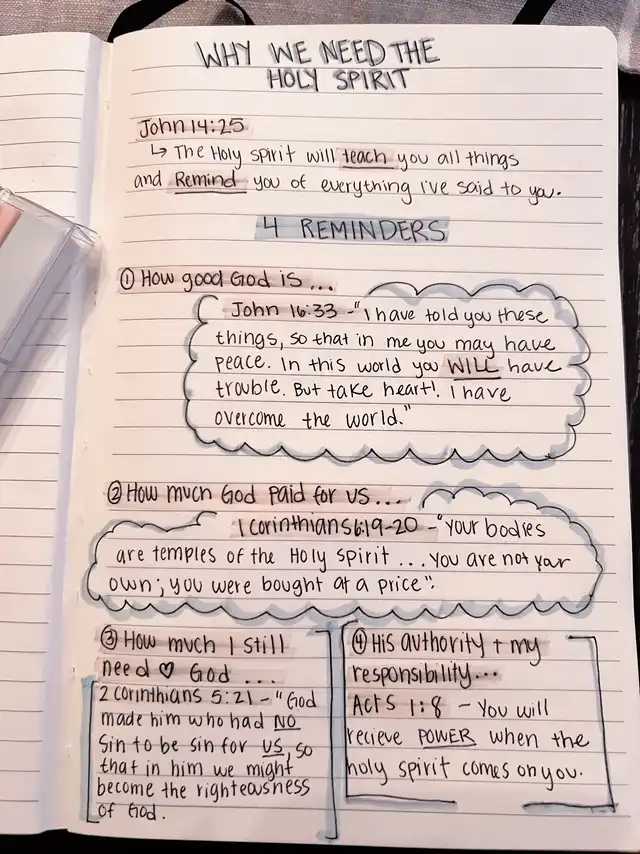 WHY WE NEED THE
HOLY SPIRIT
John 14:25
↳ The Holy spirit will teach you all things
and Remind you of everything I've said to you.
4 REMINDERS
① How good God is ...
John 16:33 - "I have told you these
things, so that in me you may have
peace. In this world you WILL have
trouble. But take heart! I have
overcome the world."
② How much God paid for us...
1 Corinthians 6:19-20 - "Your bodies
are temples of the Holy spirit ... you are not your
own; you were bought at a price".
③ How much I still
need ♡ God ...
2 Corinthians 5:21 - "God
made him who had NO
sin to be sin for us, so
that in him we might
become the righteousness
of God.
④ His authority + my
responsibility...
Acts 1:8 - You will
recieve POWER when the
holy spirit comes on you.